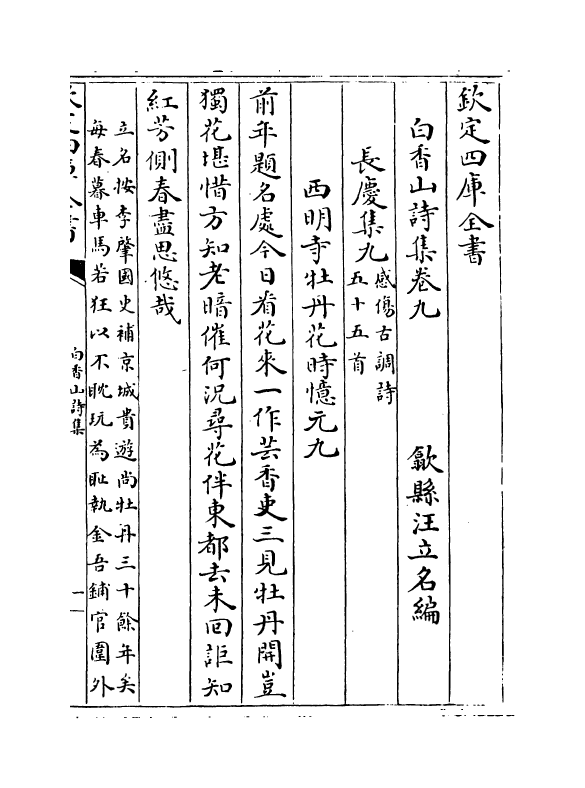 欽定四庫全書
白香山詩集卷九
歙縣汪立名編
長慶集九
感傷古調詩
五十五首
西明寺牡丹花時憶元九
前年題名處今日看花來一作芸香吏三見牡丹開豈
獨花堪惜方知老暗催何況尋花伴東都去未回詎知
紅芳側春盡思悠哉
立名按李肇國史補京城貴遊尚牡丹三十餘年矣
每春暮車馬若狂以不眈玩為耻執金吾鋪官圍外
白香山詩集
一